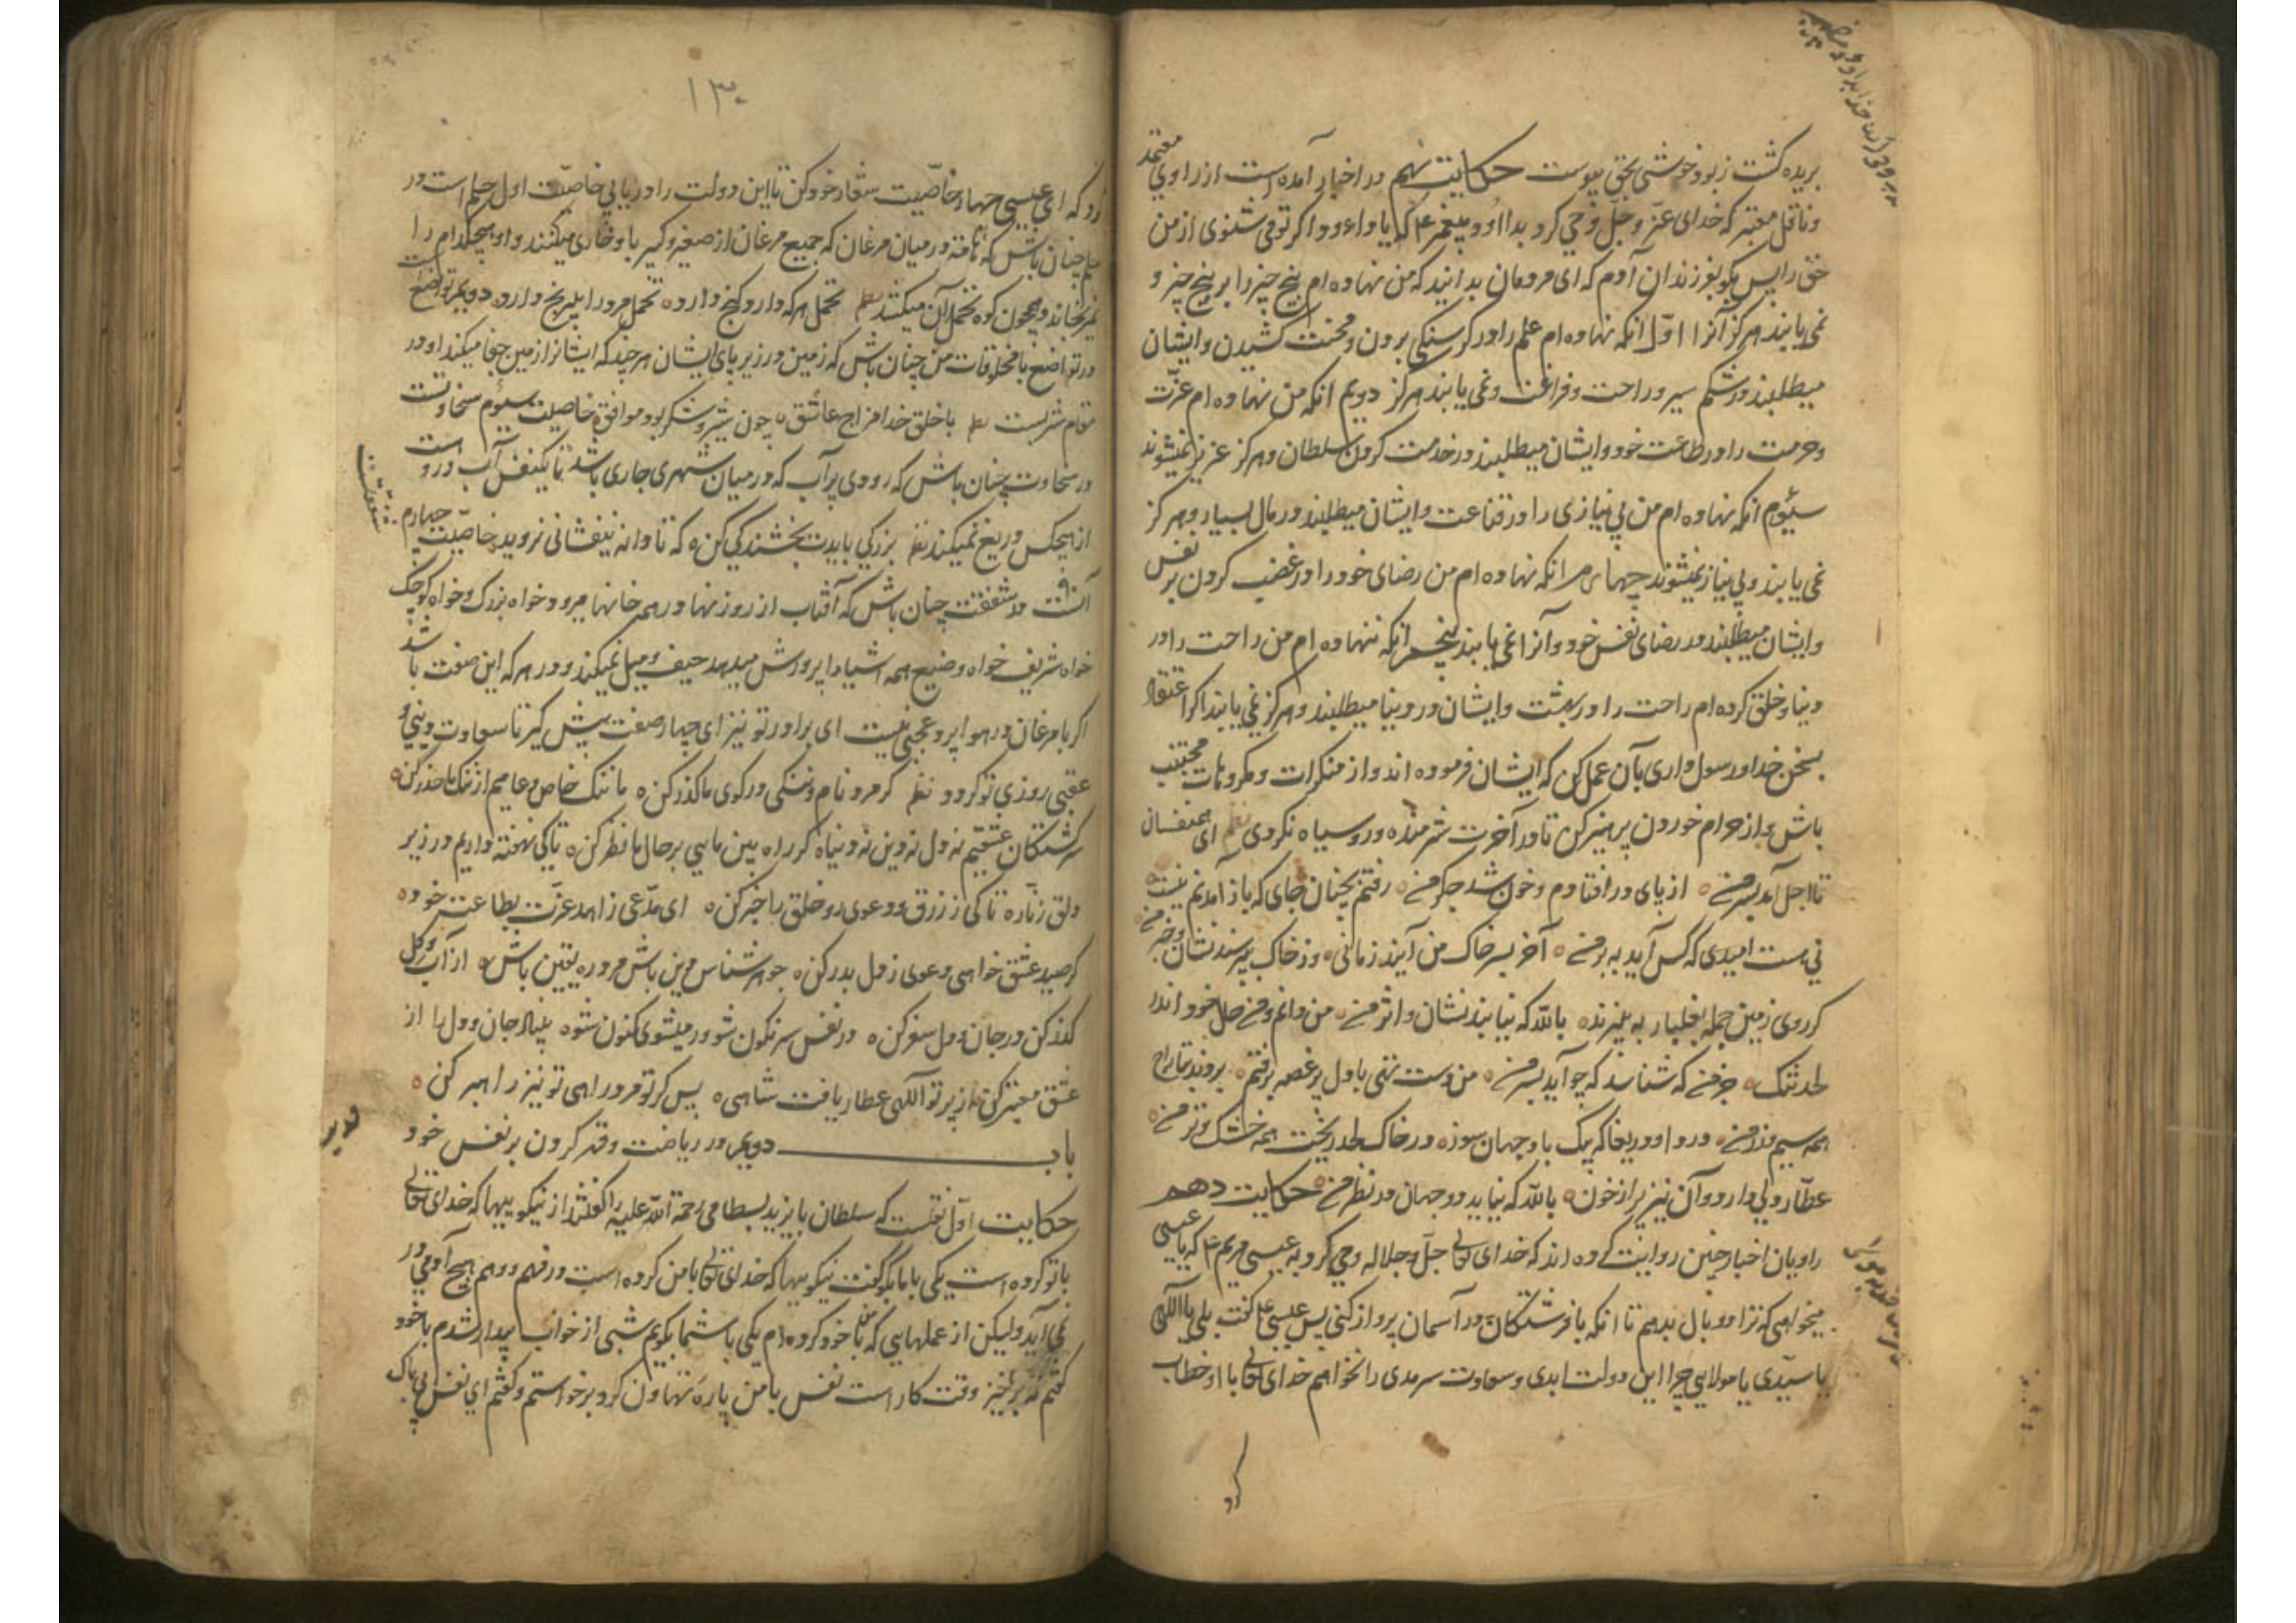 بریده گشت زبود خوشتی بحق پیوست حکایت نهم در اخبار آمده است از راوی معتمد
و ناقل معتبر که خدای عزّ و جلّ وحی کرد بداود پیغمبر ۴ که یا داود اگر تو می شنوی از من
حق را پس بگو بفرزندان آدم که ای مردمان بدانید که من نهاده ام پنج چیز را بر پنج چیز و
نمی یابند هرگز آنرا اوّل انکه نهاده ام علم را در گرسنگی بردن و محنت کشیدن و ایشان
میطلبند در شکم سیر و راحت و فراغت و نمی یابند هرگز دویم انکه من نهاده ام عزّت
و حرمت را در طاعت خود و ایشان میطلبند در خدمت کردن سلطان و هرگز عزیز نمیشوند
سیّوم انکه نهاده ام من بی نیازی را در قناعت و ایشان میطلبند در مال بسیار و هرگز
نمی یابند و بی نیاز نمیشوند چهارم انکه نهاده ام من رضای خود را در غضب کردن بر نفس
و ایشان میطلبند در رضای نفس خود و آنرا نمی یابند پنجم انکه ننهاده ام من راحت را در
دنیا و خلق کرده ام راحت را در بهشت و ایشان در دنیا میطلبند و هرگز نمی یابند اگر اعتقاد
بسخن خدا و رسول داری بآن عمل کن که ایشان فرموده اند و از منکرات و مکروهات مجتنب
باش و از حرام خوردن پرهیز کن تا در آخرت شرمنده و روسیاه نگردی نظم ای همنفسان
تا اجل آمد بسر من ه از پای در افتادم و خون شد جگر من ه رفتم بچنان جای که باز آمدنم نیست ه
نی هست امیدی که کس آید ببر من ه آخر بسر خاک من آیند زمانی ه وز خاک بپرسند نشان و خبر من ه
گر روی زمین جمله بغلبار به بیزند ه بالله که نیابند نشان و اثر من ه من دانم و من حال خود اندر
لحد تنک ه جز من که شناسد که چه آید بسر من ه من دست تهی با دل پر غصه برفتم ه بردند بتاراج
همه سیم و زر من ه درد او دریغا که بیک باد جهان سوز ه در خاک لحد ریخت همه خشک و تر من ه
عطّار دلی دارد و آن نیز پر از خون ه بالله که نیاید دو جهان در نظر من ه حکایت دهم
راویان اخبار چنین روایت کرده اند که خدای تعالی جلّ و جلاله وحی کرد به عیسی مریم ۴ که یا عیسی
میخواهی که ترا دو بال بدهم تا انکه با فرشتکان در آسمان پرواز کنی پس عیسی ع گفت بلی یا الهی
یا سیّدی یا مولایی چرا این دولت ابدی و سعادت سرمدی را نخواهم خدای تعالی با او خطاب
کرد
۱۳۰
کرد که ای عیسی چهار خاصّیت شعار خود کن تا این دولت را دریابی خاصّیت اول حلم است در
حلم چنان باش که ناقه در میان مرغان که جمیع مرغان از صغیر و کبیر با و خاری میکنند و او هیچکدام را
نمیرنجاند و همچون کوه تحمل آن میکشد نظم تحمل هر که دارد گنج دارد ه تحمل مرد را بیرنج دارد ه دویم تواضع است
در تواضع با مخلوقات من چنان باش که زمین در زیر پای ایشان هر چند که ایشانرا از مین جفا میکند او در
مقام شریست نظم با خلق خدا مزاج عاشق ه چون شیر و شکر بود موافق ه خاصیت سیّوم سخاوتست
در سخاوت چنان باش که رودی پر آب که در میان شهری جاری باشد تا یکنفس آب در و است
از هیچکس دریغ نمیکند نظم بزرگی بایدت بخشندگی کن ه که تا دانه نیفشانی نروید خاصیّت چهارم
شفقتست
آنست در شفقت چنان باش که آفتاب از روزنها در همه خانها میرود خواه بزرگ و خواه کوچک
خواه شریف خواه وضیع همه اشیا را پرورش میدهد حیف و میل نمیکند و در هر که این صفت باشد
اگر با مرغان در هوا پرد عجبی نیست ای برادر تو نیز ای چهار صفت پیش گیر تا سعادت دینی و
عقبی روزی تو گردد نظم گر مرد نام و ننگی در کوی ما گذر کن ه ما ننگ خاص و عامیم از ننگ ما حذر کن ه
سرگشتگان عشقیم نه دل نه دین نه دنیا ه گر راه بین مایی بر حال ما نظر کن ه تا کی نهفته داریم در زیر
دلق زنّار ه تا کی ز زرق و دعوی رو خلق را خبر کن ه ای مدّعی زاهد غرّت بطاعت خود ه
گر صید عشق خواهی دعوی ز دل بدر کن ه جوهر شناس دین باش مرد ره یقین باش ه از آب و گل
گذر کن در جان و دل سفر کن ه در نفس سرنگون شو ور میشوی کنون شو ه بنیاد جان و دل را از
عشق معتبر کن ه از پرتو الهی عطار یافت شاهی ه پس گر تو مرد راهی تو نیز راهبر کن ه
باب دویم در ریاضت و قهر کردن بر نفس خود
حکایت اوّل نقلست که سلطان بایزید بسطامی رحمة الله علیه را گفتند از نیکوییها که خدای تعالی
با تو کرده است یکی با ما بگو گفت نیکوییها که خدای تعالی با من کرده است در فهم و وهم هیچ آدمی در
نمی آید ولیکن از عملهایی که با نفس خود کرده ام یکی با شما بگویم شبی از خواب بیدار شدم با خود
گفتم که برخیز وقت کار است نفس با من پارهٔ تهاون کرد برخواستم و گفتم ای نفس بی باک